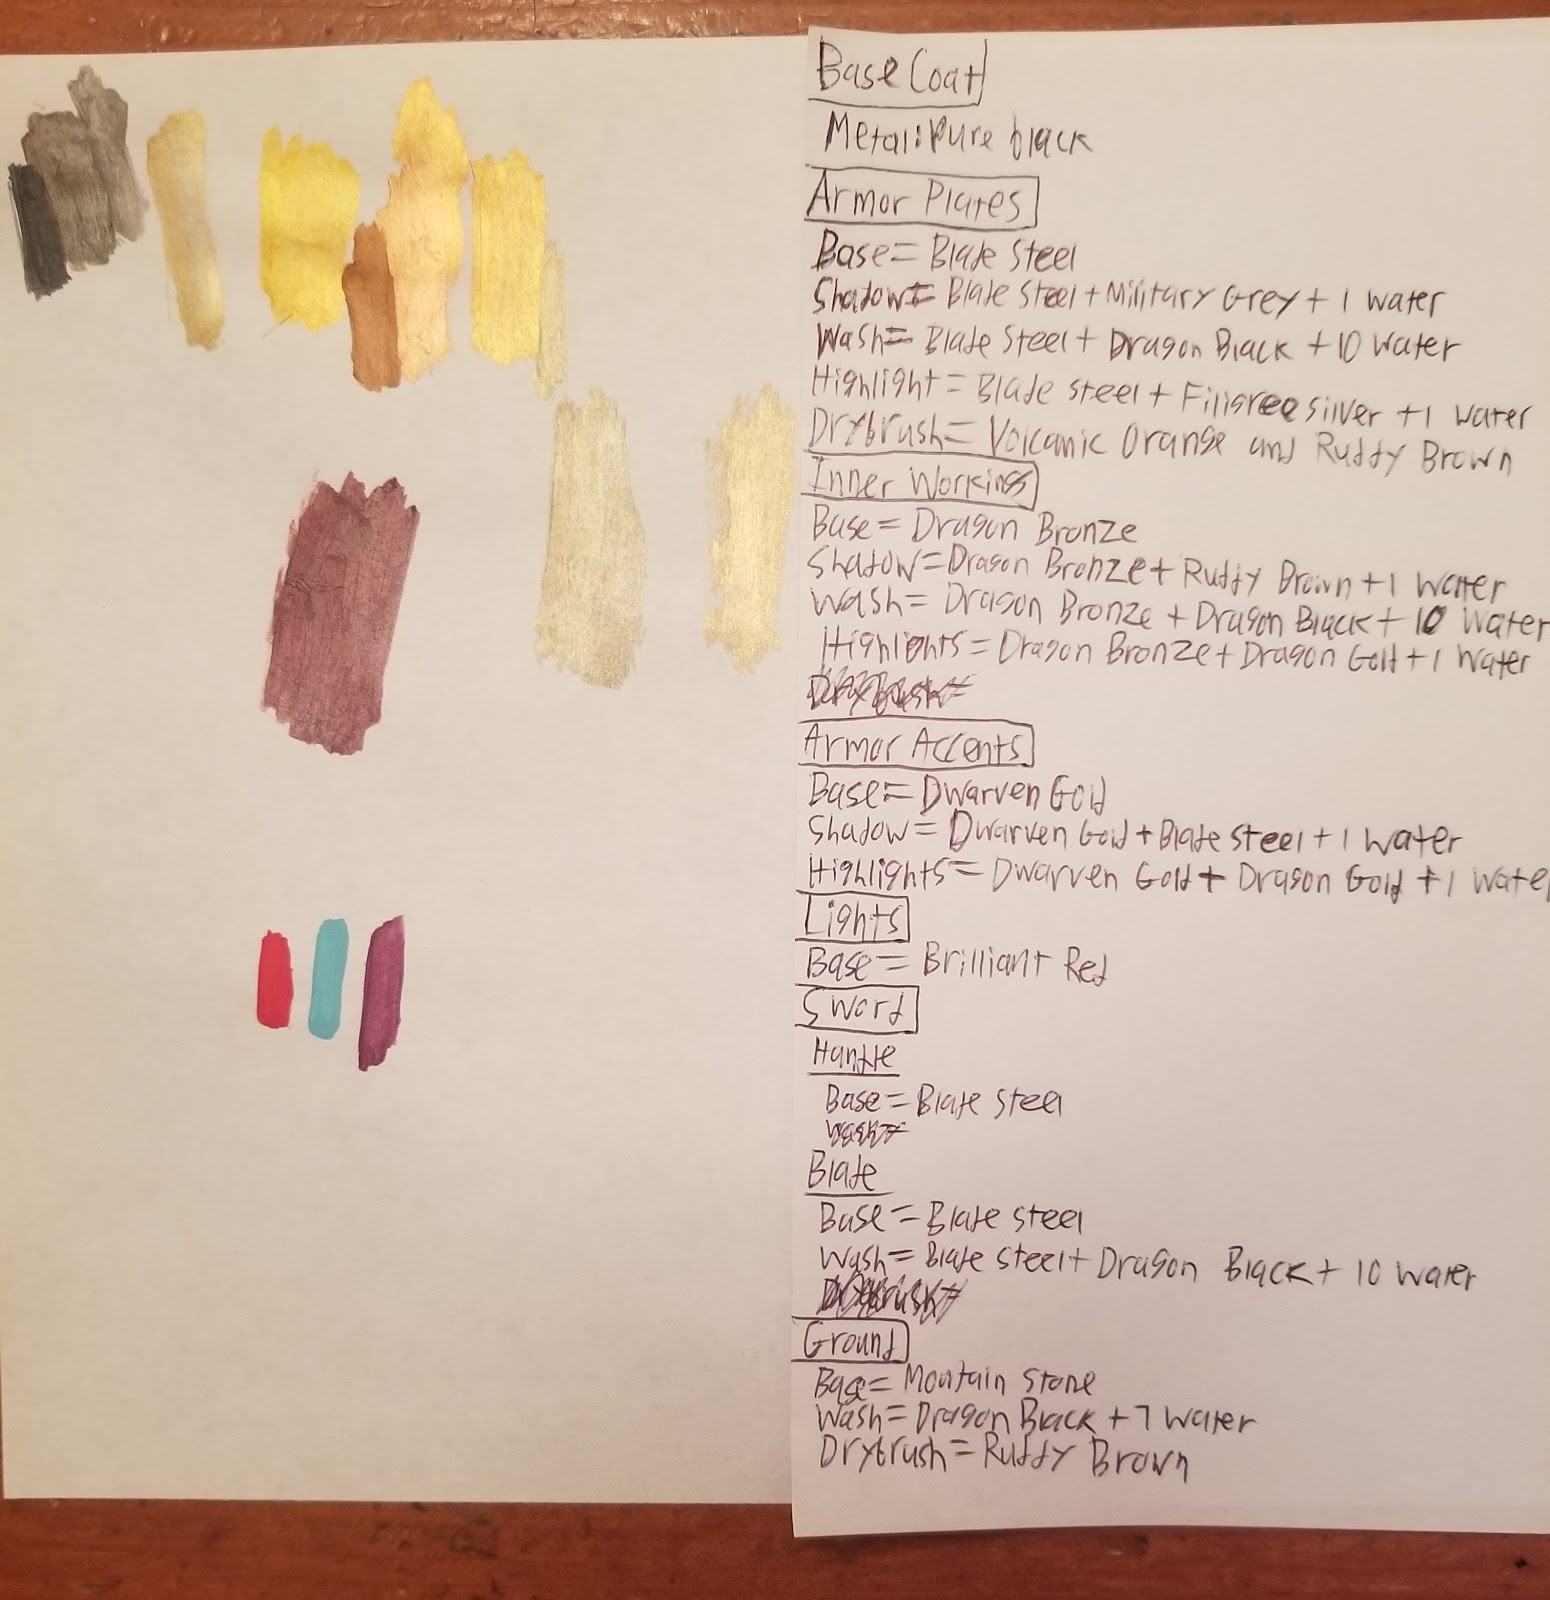 Base Coat
Metal: Pure black
Armor Plates
Base= Blade Steel
Shadow= Blade Steel + Military Grey + 1 water
Wash= Blade Steel + Dragon Black + 10 Water
Highlight= Blade steel + Filigree silver + 1 water
Drybrush= Volcanic Orange and Ruddy Brown
Inner Workings
Base= Dragon Bronze
Shadow= Dragon Bronze + Ruddy Brown + 1 Water
Wash= Dragon Bronze + Dragon Black + 10 Water
Highlights= Dragon Bronze + Dragon Gold + 1 Water
Drybrush=
Armor Accents
Base= Dwarven Gold
Shadow= Dwarven Gold + Blade Steel + 1 Water
Highlights= Dwarven Gold + Dragon Gold + 1 Water
Lights
Base= Brilliant Red
Sword
Handle
Base= Blade Steel
Wash=
Blade
Base= Blade Steel
Wash= Blade Steel + Dragon Black + 10 Water
Drybrush=
Ground
Base= Mountain Stone
Wash= Dragon Black + 7 Water
Drybrush= Ruddy Brown